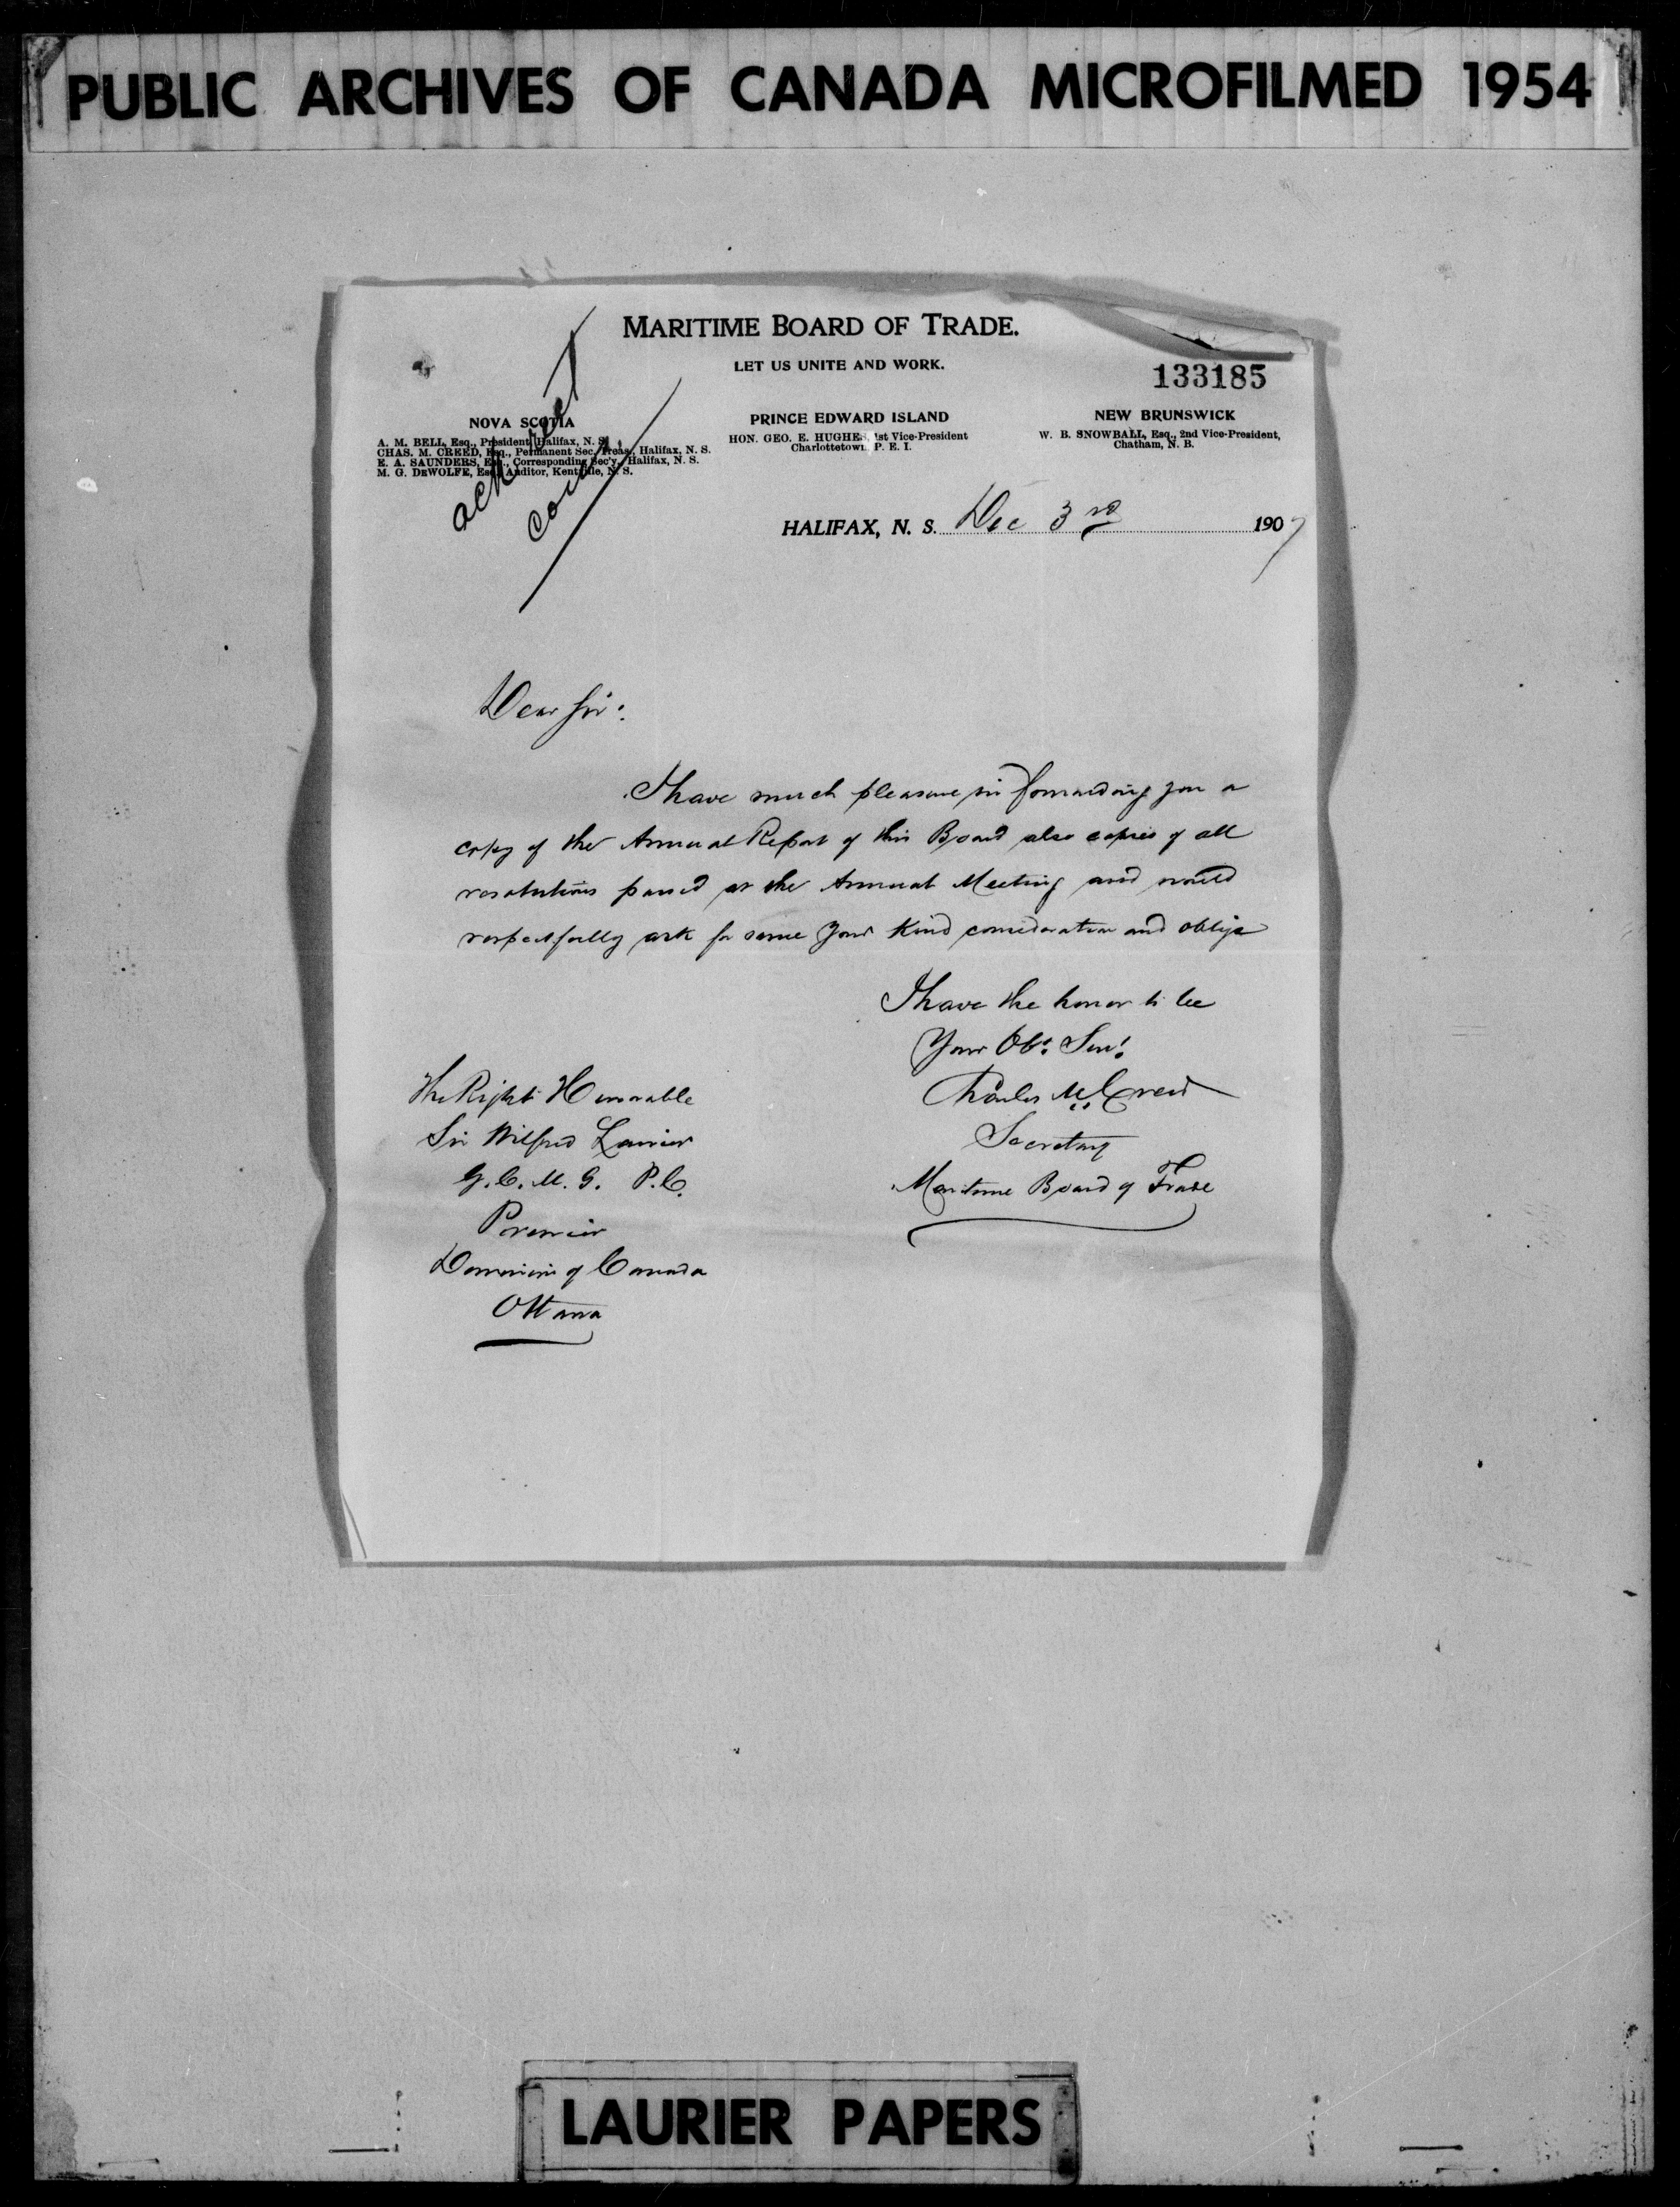 PUBLIC ARCHIVES OF CANADA MICROFILMED 1954
MARITIME BOARD OF TRADE.
LET US UNITE AND WORK.
133185
NOVA SCOTIA
A. M. BELL, Esq., President, Halifax, N. S.
CHAS. M. CREED, Esq., Permanent Sec. Treas., Halifax, N. S.
E. A. SAUNDERS, Esq., Corresponding Sec'y., Halifax, N. S.
M. G. DEWOLFE, Esq., Auditor, Kentville, N. S.
PRINCE EDWARD ISLAND
HON. GEO. E. HUGHES, 1st Vice-President
Charlottetown, P. E. I.
NEW BRUNSWICK
W. B. SNOWBALL, Esq., 2nd Vice-President,
Chatham, N. B.
ack
HALIFAX, N. S. Dec 3rd 1907
Dear Sir:
I have much pleasure in forwarding you a
copy of the Annual Report of this Board also copies of all
resolutions passed at the Annual Meeting and would
respectfully ask for same your kind consideration and oblige
I have the honor to be
Your Obt. Servt.
Charles M. Creed
Secretary
Maritime Board of Trade
The Right Honorable
Sir Wilfred Laurier
G.C.M.G. P.C.
Premier
Dominion of Canada
Ottawa
LAURIER PAPERS